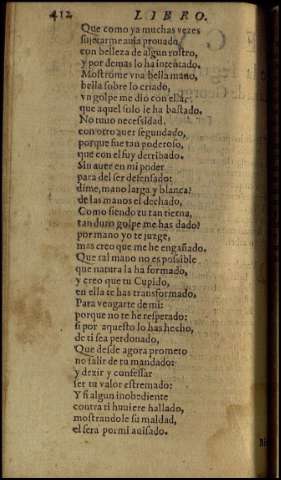 412 LIBRO.
Que como ya muchas vezes
sujetarme auia prouado,
con belleza de algun rostro,
y por demas lo ha intentado.
Mostròme vna bella mano,
bella sobre lo criado,
vn golpe me dio con ella:
que aquel solo le ha bastado.
No tuuo necessidad,
con otro auer segundado,
porque fue tan poderoso,
que con el fuy derribado.
Sin auer en mi poder
para del ser defensado:
dime, mano larga y blanca?
de las manos el dechado,
Como siendo tu tan tierna,
tan duro golpe me has dado?
por mano yo te juzgè,
mas creo que me he engañado.
Que tal mano no es possible
que natura la ha formado,
y creo que tu Cupido,
en ella te has transformado,
Para vengarte de mi:
porque no te he respetado:
si por aquesto lo has hecho,
de ti sea perdonado,
Que desde agora prometo
no salir de tu mandado:
y dezir y confessar
ser tu valor estremado:
Y si algun inobediente
contra ti huuiere hallado,
mostrandole su maldad,
el sera por mi auisado.